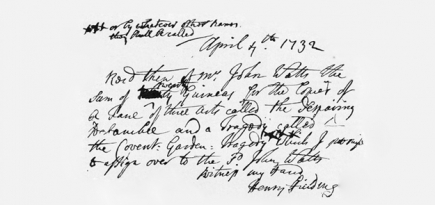 or by whatever other names
they shall be called
April 4th 1732
Recd then of Mr. John Watts the
Sum of twenty Guineas for the Copies of
a Farce of three Acts called the Despairing
Debauchee and a Tragedy called
the Covent: Garden: Tragedy which I
to assign over to the sd. John Watts
Witness my Hand
Henry Fielding